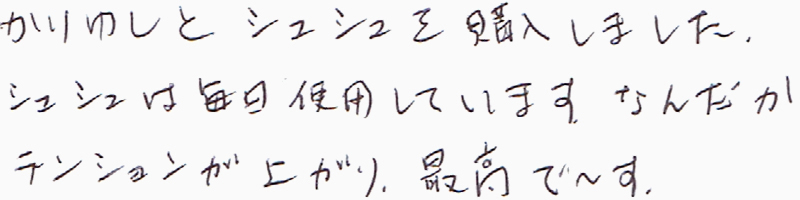 かりゆしと シュシュを購入しました.
シュシュは毎日使用しています. なんだか
テンションが上がり. 最高で〜す.